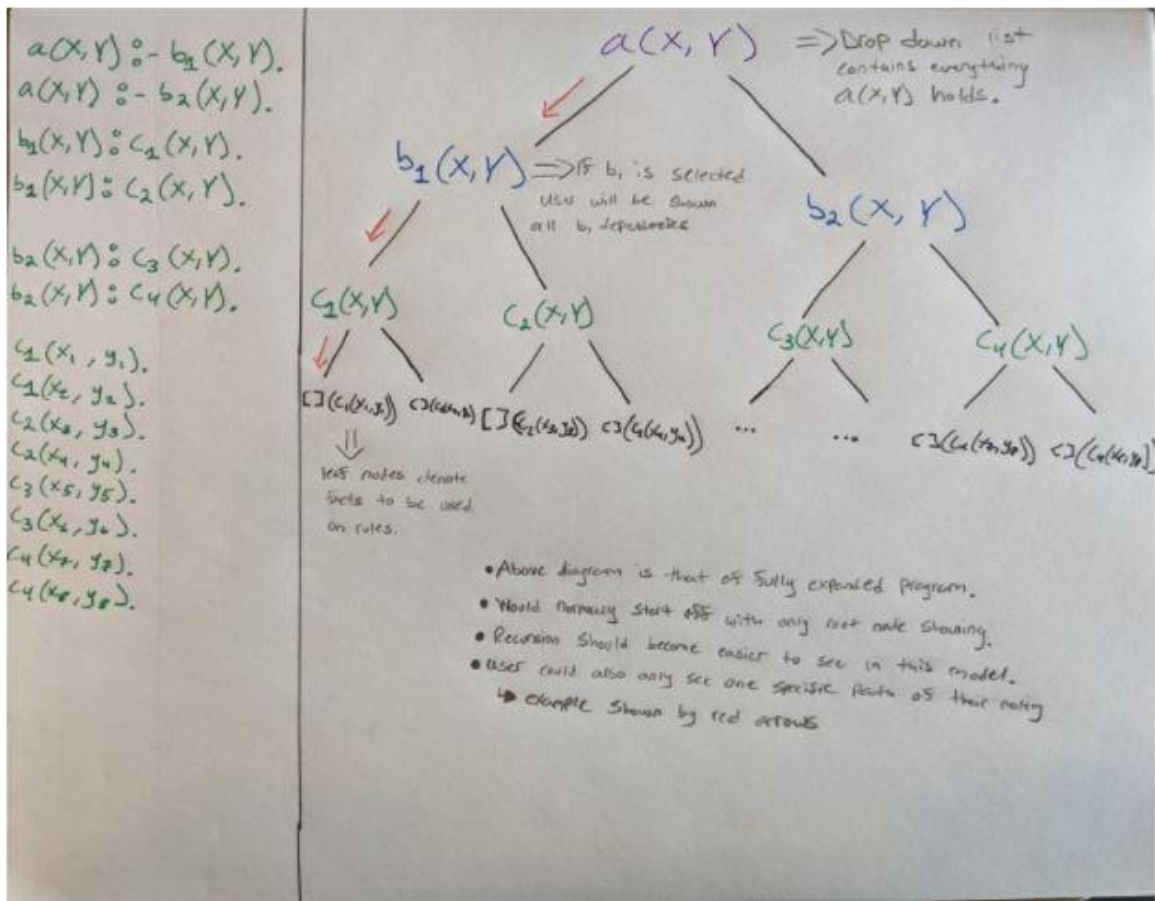 a(X,Y) :- b₁(X,Y).
a(X,Y) :- b₂(X,Y).
b₁(X,Y) : c₁(X,Y).
b₁(X,Y) : c₂(X,Y).
b₂(X,Y) : c₃(X,Y).
b₂(X,Y) : c₄(X,Y).
c₁(x₁, y₁).
c₁(x₂, y₂).
c₂(x₃, y₃).
c₂(x₄, y₄).
c₃(x₅, y₅).
c₃(x₆, y₆).
c₄(x₇, y₇).
c₄(x₈, y₈).
a(X, Y) => Drop down list
contains everything
a(X,Y) holds.
b₁(X,Y) => If b₁ is selected
user will be shown
all b₁
b₂(X, Y)
c₁(X,Y)
c₂(X,Y)
c₃(X,Y)
c₄(X,Y)
[](c₁(x₁,y₁)) [] [](c₂(x₃,y₃)) [] ... ... [] []
leaf nodes denote
facts to be used
on rules.
• Above diagram is that of fully expanded program.
• Would normally start off with only root node showing.
• Recursion should become easier to see in this model.
• User could also only see one specific path of their
↳ example shown by red arrows